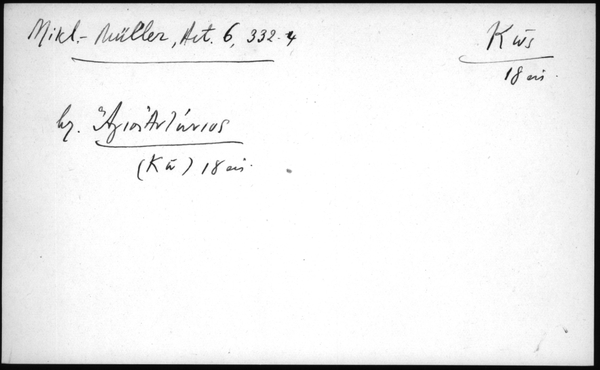 Mikl.-Müller, Act. 6, 332.4
Κῶς
18 αἰ.
Ἅγιος Ἀντώνιος
(Κῶ) 18 αἰ.